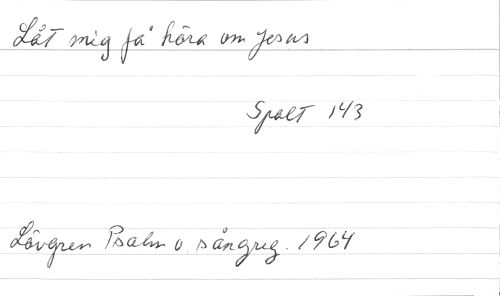 Låt mig få höra om Jesus
Spalt 143
Lövgren Psalm o. sångreg. 1964